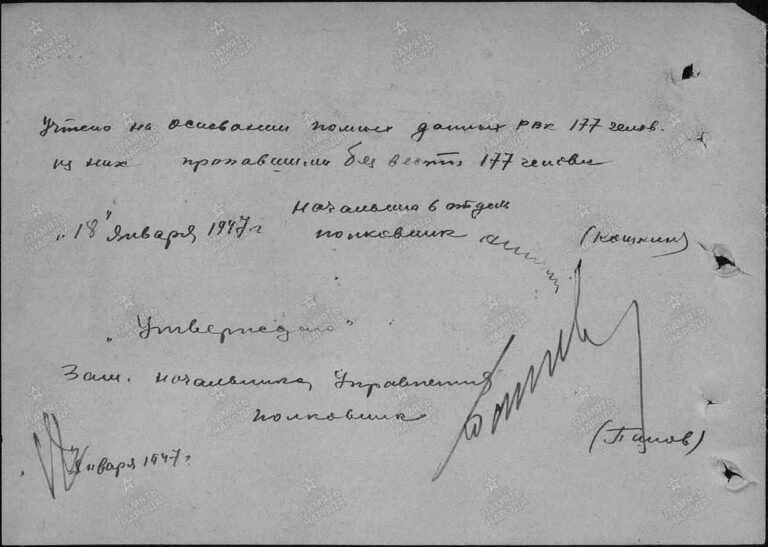 Учтено на основании полных данных РВК 177 челов.
из них пропавшими без вести 177 человек
Начальник отдела
"18" Января 1947 г полковник (Кошкин)
"Утверждаю"
Зам. начальника Управления
полковник
(Пилов)
Января 1947 г
ПАМЯТЬ НАРОДА